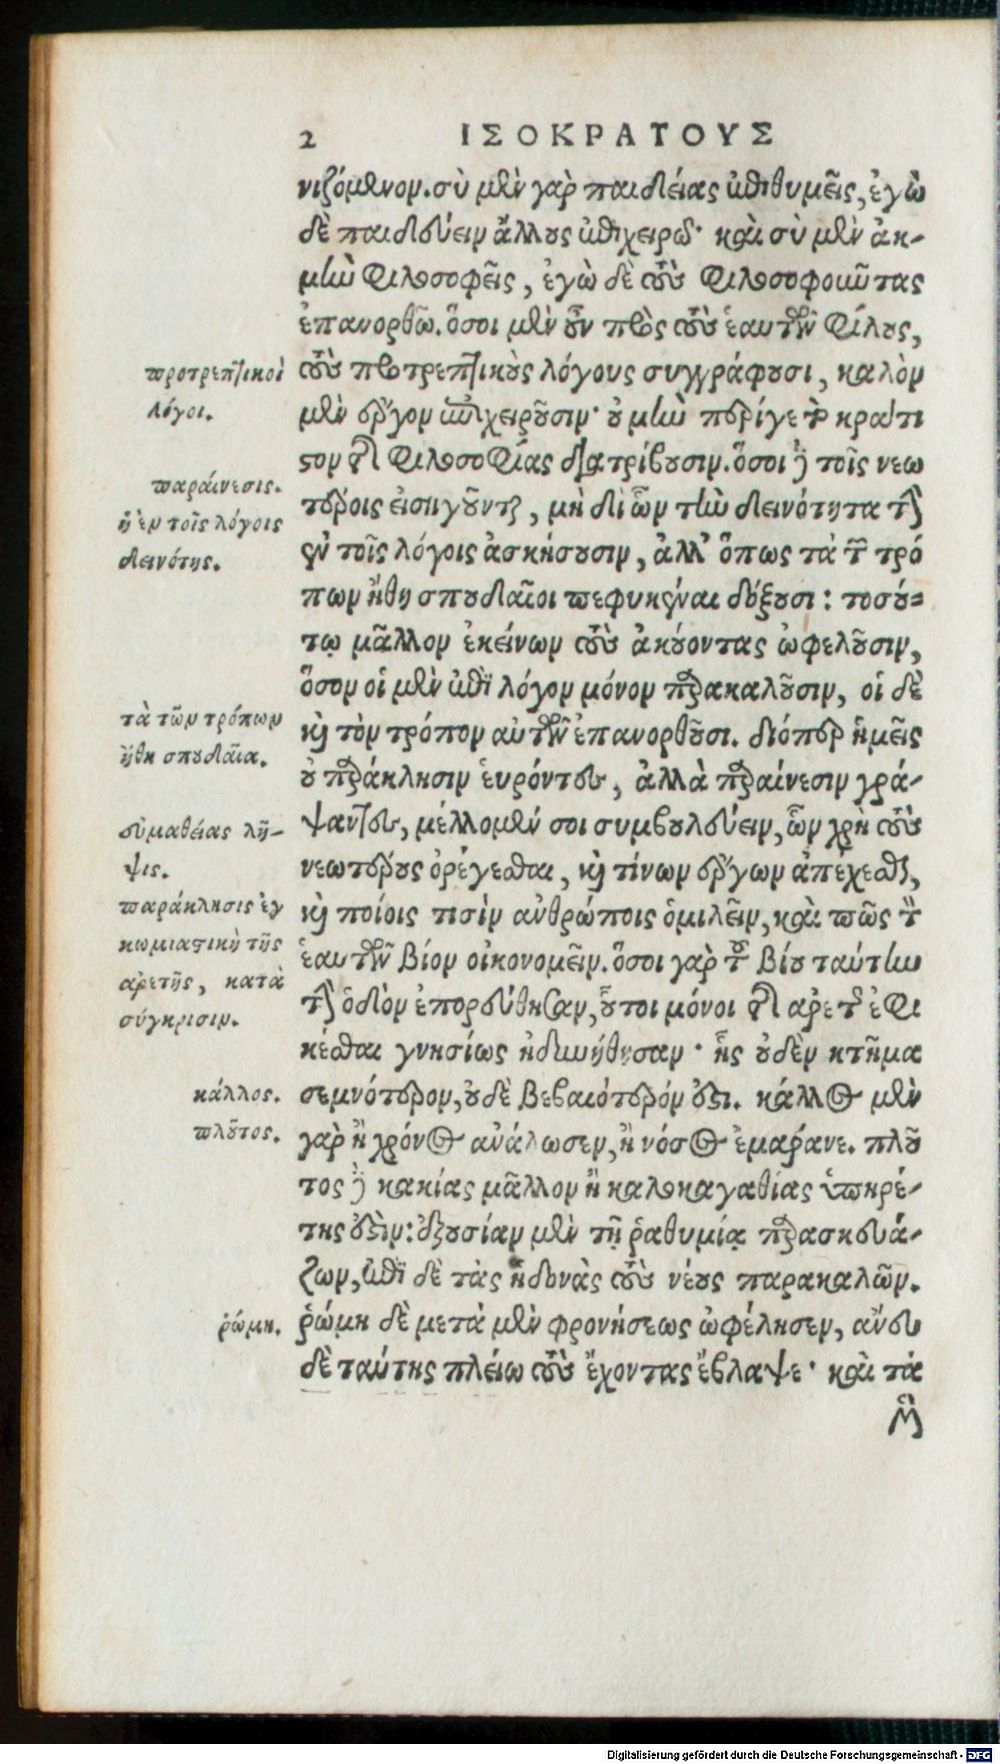 2 ΙΣΟΚΡΑΤΟΥΣ
νιζόμενον. σὺ μὲν γὰρ παιδείας ἐπιθυμεῖς, ἐγὼ
δὲ παιδεύειν ἄλλους ἐπιχειρῶ· καὶ σὺ μὲν ἀκ-
μὴν φιλοσοφεῖς, ἐγὼ δὲ τοὺς φιλοσοφοῦντας
ἐπανορθῶ. ὅσοι μὲν οὖν πρὸς τοὺς ἑαυτῶν φίλους,
προτρεπτικοὶ
λόγοι.
τοὺς προτρεπτικοὺς λόγους συγγράφουσι, καλὸν
μὲν ἔργον ἐπιχειροῦσιν· οὐ μὴν περίγε τὸ κράτι
στον τῆς φιλοσοφίας διατρίβουσιν. ὅσοι δὲ τοῖς νεω
παραίνεσις.
ἡ ἐν τοῖς λόγοις
δεινότης.
τέροις εἰσηγοῦνται, μὴ δι ὧν τὴν δεινότητα τὴν
ἐν τοῖς λόγοις ἀσκήσουσιν, ἀλλ' ὅπως τὰ τῶν τρό
πων ἤθη σπουδαῖοι πεφυκέναι δόξουσι: τοσού=
τῳ μᾶλλον ἐκείνων τοὺς ἀκούοντας ὠφελοῦσιν,
ὅσον οἱ μὲν ἐπὶ λόγον μόνον παρακαλοῦσιν, οἱ δὲ
τὰ τῶν τρόπων
ἤθη σπουδαῖα.
καὶ τὸν τρόπον αὐτῶν ἐπανορθοῦσι. διόπερ ἡμεῖς
οὐ παράκλησιν εὑρόντες, ἀλλὰ παραίνεσιν γρά-
ψαντες, μέλλομέν σοι συμβουλεύειν, ὧν χρὴ τοὺς
εὐμαθείας λῆ-
ψις.
νεωτέρους ὀρέγεσθαι, καὶ τίνων ἔργων ἀπέχεσθαι,
καὶ ποίοις τισὶν ἀνθρώποις ὁμιλεῖν, καὶ πῶς τὸν
παράκλησις ἐγ
κωμιαστικὴ τῆς
ἀρετῆς, κατὰ
σύγκρισιν.
ἑαυτῶν βίον οἰκονομεῖν. ὅσοι γὰρ τοῦ βίου ταύτην
τὴν ὁδὸν ἐπορεύθησαν, οὗτοι μόνοι τῆς ἀρετῆς ἐφι
κέσθαι γνησίως ἠδυνήθησαν· ἧς οὐδὲν κτῆμα
κάλλος.
πλοῦτος.
σεμνότερον, οὐδὲ βεβαιότερόν ἐστι. κάλλος μὲν
γὰρ ἢ χρόνος ἀνάλωσεν, ἢ νόσος ἐμάρανε. πλοῦ
τος δὲ κακίας μᾶλλον ἢ καλοκαγαθίας ὑπηρέ-
της ἐστὶν: ἐξουσίαν μὲν τῇ ῥαθυμίᾳ παρασκευά-
ζων, ἐπὶ δὲ τὰς ἡδονὰς τοὺς νέους παρακαλῶν.
ῥώμη.
ῥώμη δὲ μετὰ μὲν φρονήσεως ὠφέλησεν, ἄνευ
δὲ ταύτης πλείω τοὺς ἔχοντας ἔβλαψε· καὶ τὰ
μὲν
Digitalisierung gefördert durch die Deutsche Forschungsgemeinschaft - DFG